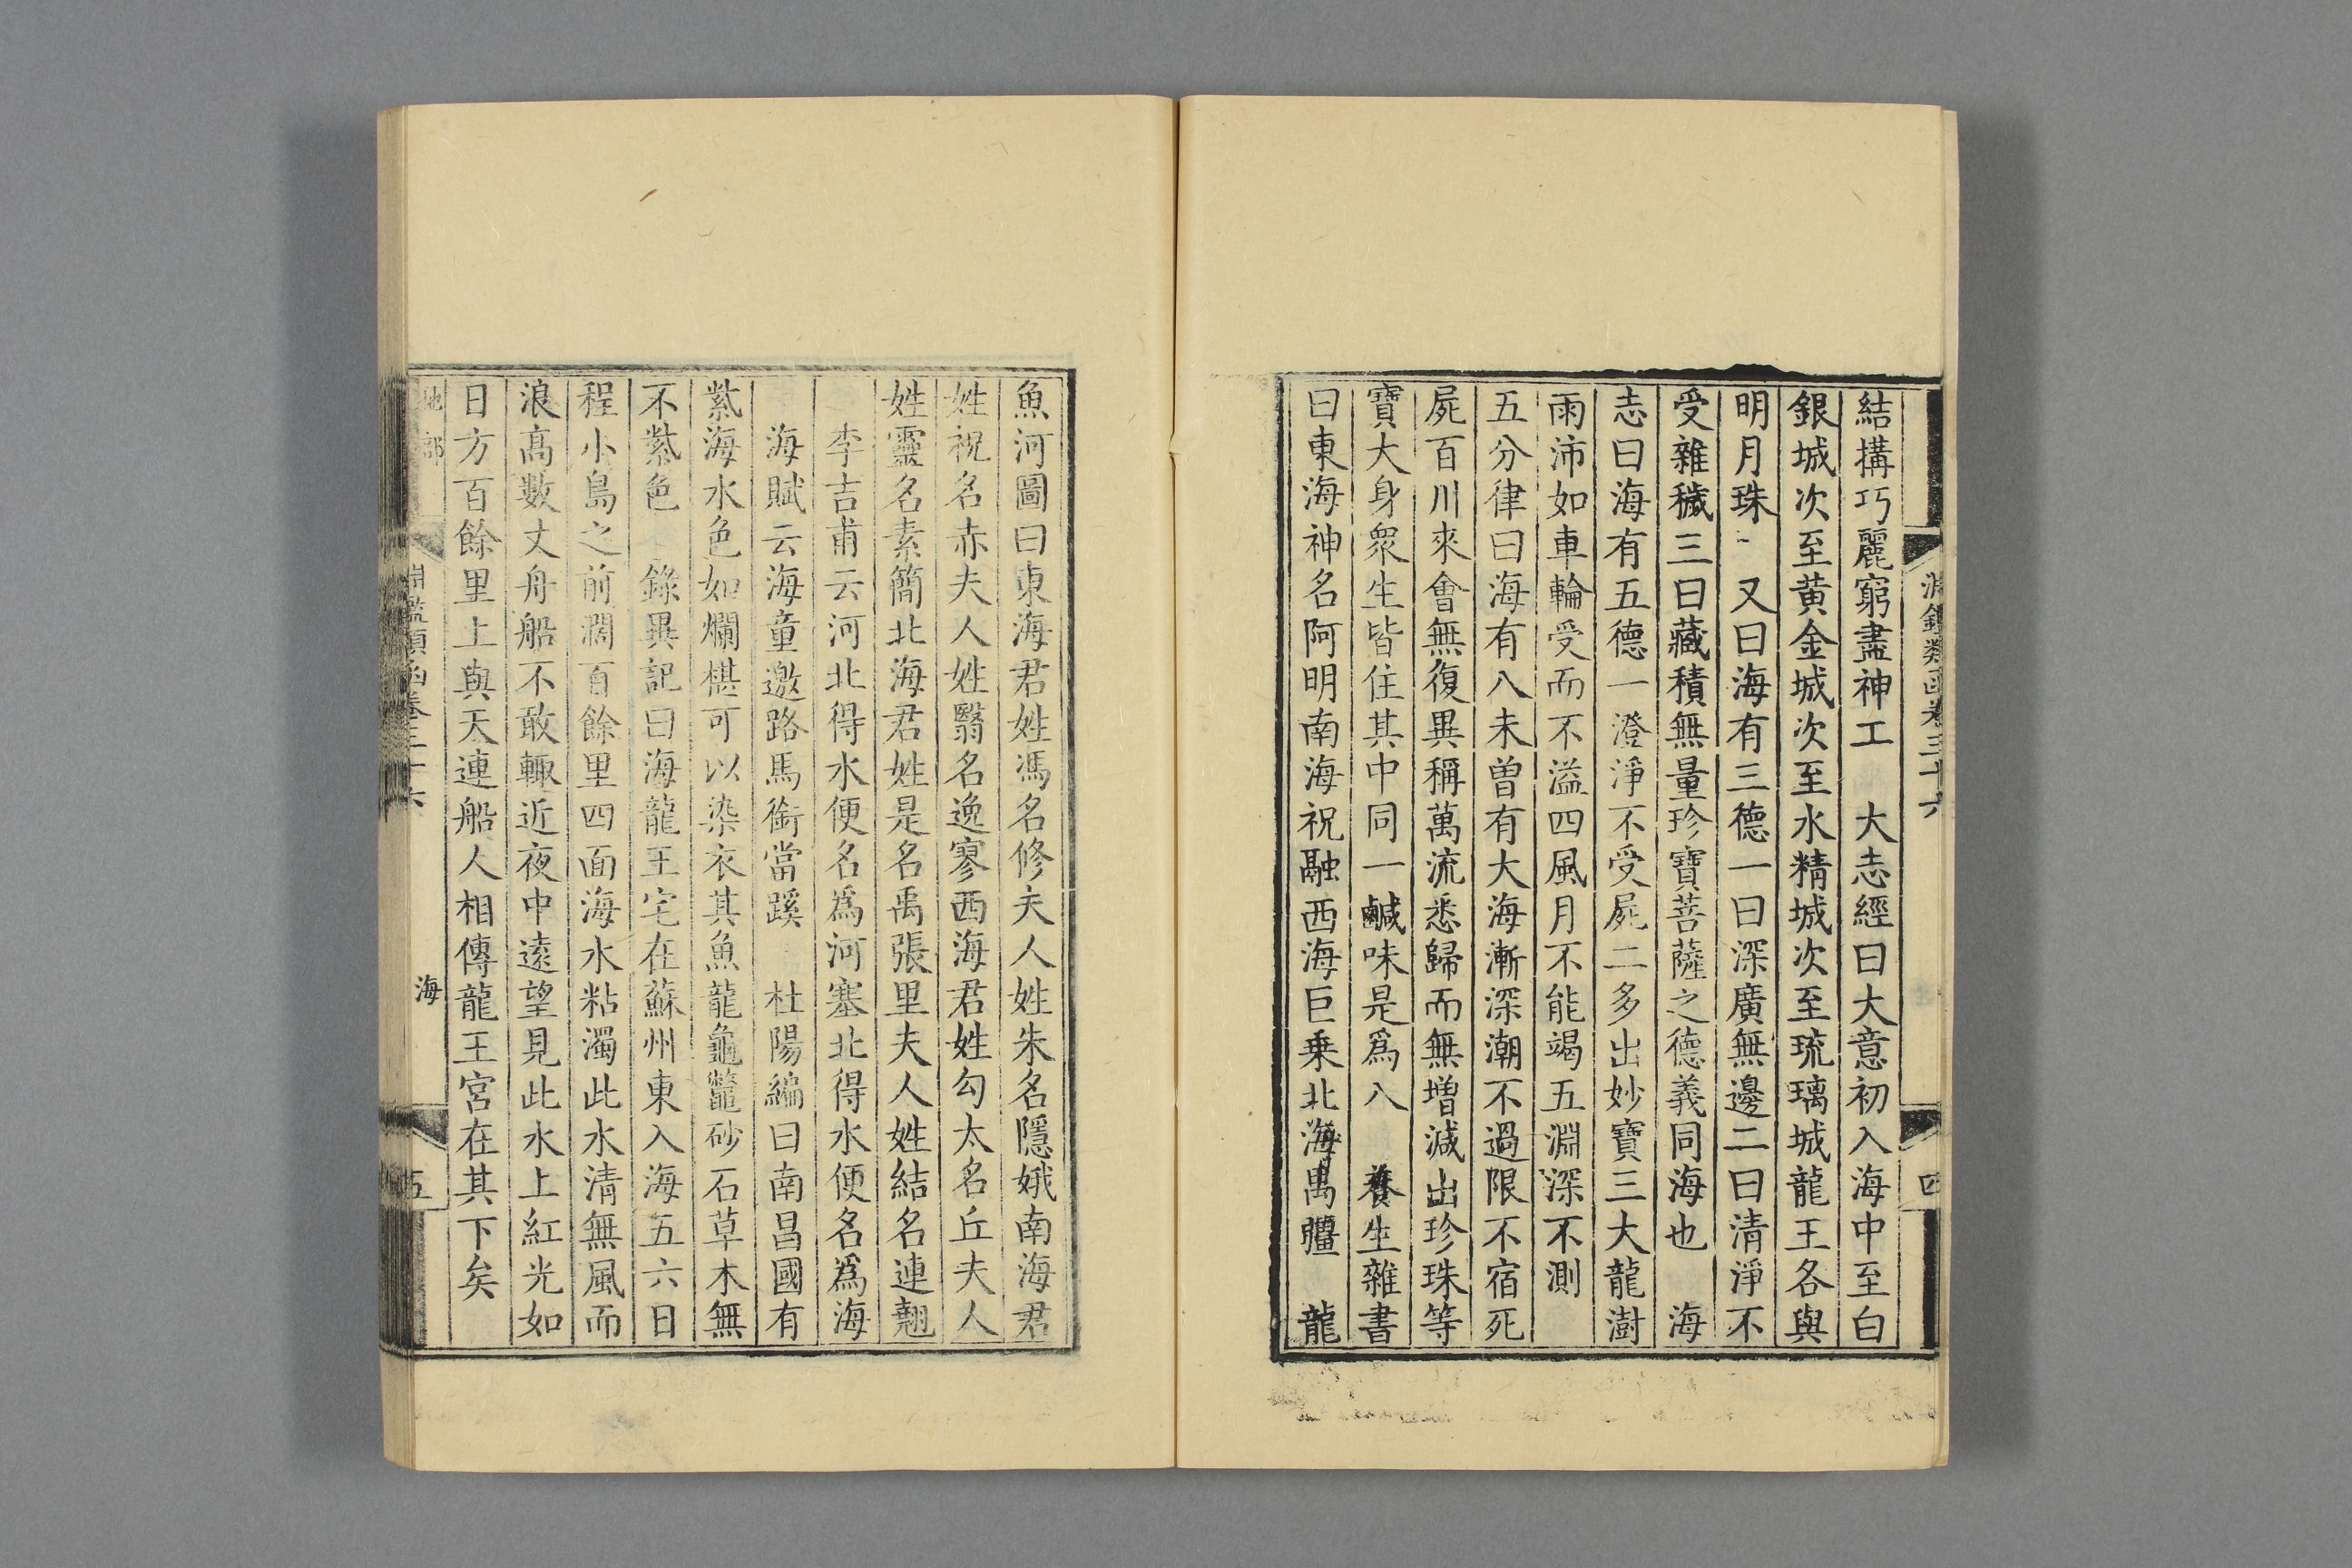 淵鑑類函卷三十六
四
結搆巧麗窮盡神工　大志經曰大意初入海中至白
銀城次至黄金城次至水精城次至琉璃城龍王各與
明月珠　又曰海有三德一曰深廣無邊二曰清淨不
受雜穢三曰藏積無量珍寶菩薩之德義同海也　海
志曰海有五德一澄淨不受屍二多出妙寶三大龍澍
雨沛如車輪受而不溢四風月不能竭五淵深不測
五分律曰海有八未曾有大海漸深潮不過限不宿死
屍百川來會無復異稱萬流悉歸而無增減出珍珠等
寶大身衆生皆住其中同一鹹味是爲八　養生雜書
曰東海神名阿明南海祝融西海巨乗北海禺疆　龍
魚河圖曰東海君姓馮名修夫人姓朱名隱娥南海君
姓祝名赤夫人姓翳名逸寥西海君姓勾太名丘夫人
姓靈名素簡北海君姓是名禹張里夫人姓結名連翹
李吉甫云河北得水便名爲河塞北得水便名爲海
海賦云海童邀路馬銜當蹊　杜陽編曰南昌國有
紫海水色如爛椹可以染衣其魚龍龜鼈砂石草木無
不紫色　錄異記曰海龍王宅在蘇州東入海五六日
程小島之前濶百餘里四面海水粘濁此水清無風而
浪高數丈舟船不敢輙近夜中遠望見此水上紅光如
日方百餘里上與天連船人相傳龍王宮在其下矣
地部
淵鑑類函卷三十六
海
五